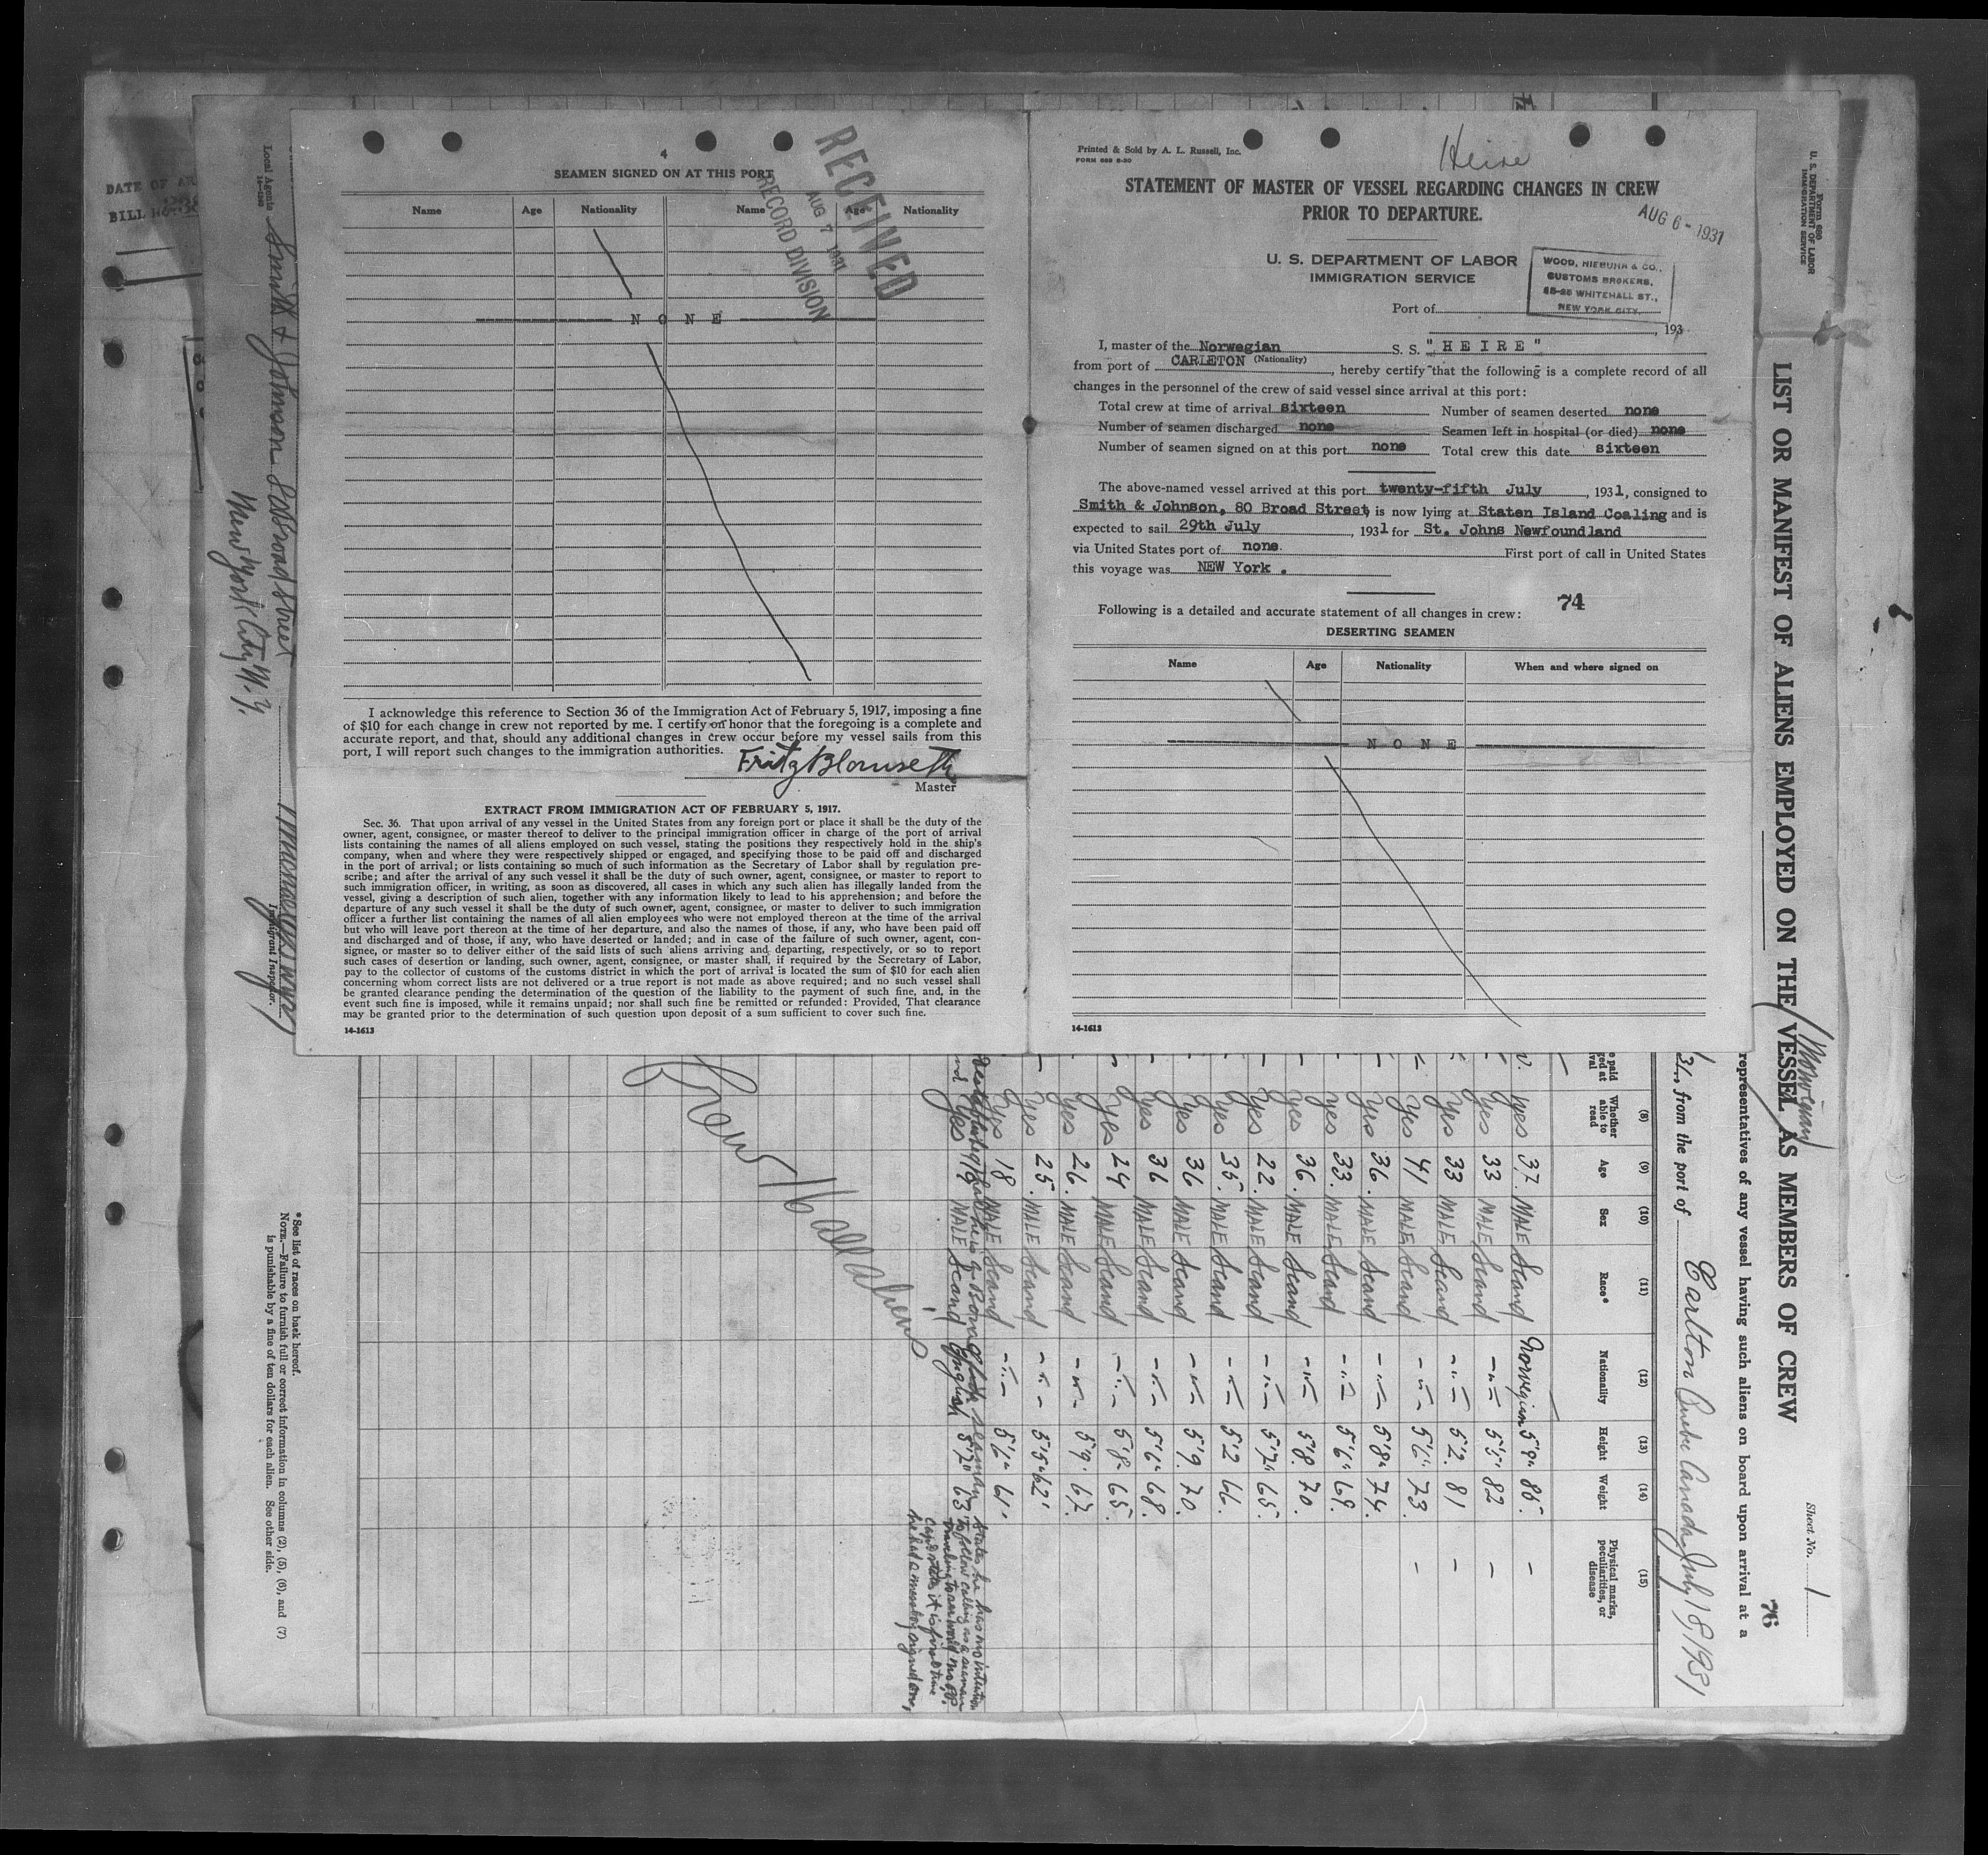 4
SEAMEN SIGNED ON AT THIS PORT
Name Age Nationality Name Age Nationality
RECEIVED
AUG 7 1931
RECORD DIVISION
N O N E
I acknowledge this reference to Section 36 of the Immigration Act of February 5, 1917, imposing a fine
of $10 for each change in crew not reported by me. I certify on honor that the foregoing is a complete and
accurate report, and that, should any additional changes in crew occur before my vessel sails from this
port, I will report such changes to the immigration authorities.
Fritz Blomseth
Master
EXTRACT FROM IMMIGRATION ACT OF FEBRUARY 5, 1917.
Sec. 36. That upon arrival of any vessel in the United States from any foreign port or place it shall be the duty of the
owner, agent, consignee, or master thereof to deliver to the principal immigration officer in charge of the port of arrival
lists containing the names of all aliens employed on such vessel, stating the positions they respectively hold in the ship's
company, when and where they were respectively shipped or engaged, and specifying those to be paid off and discharged
in the port of arrival; or lists containing so much of such information as the Secretary of Labor shall by regulation pre-
scribe; and after the arrival of any such vessel it shall be the duty of such owner, agent, consignee, or master to report to
such immigration officer, in writing, as soon as discovered, all cases in which any such alien has illegally landed from the
vessel, giving a description of such alien, together with any information likely to lead to his apprehension; and before the
departure of any such vessel it shall be the duty of such owner, agent, consignee, or master to deliver to such immigration
officer a further list containing the names of all alien employees who were not employed thereon at the time of the arrival
but who will leave port thereon at the time of her departure, and also the names of those, if any, who have been paid off
and discharged and of those, if any, who have deserted or landed; and in case of the failure of such owner, agent, con-
signee, or master so to deliver either of the said lists of such aliens arriving and departing, respectively, or so to report
such cases of desertion or landing, such owner, agent, consignee, or master shall, if required by the Secretary of Labor,
pay to the collector of customs of the customs district in which the port of arrival is located the sum of $10 for each alien
concerning whom correct lists are not delivered or a true report is not made as above required; and no such vessel shall
be granted clearance pending the determination of the question of the liability to the payment of such fine, and, in the
event such fine is imposed, while it remains unpaid; nor shall such fine be remitted or refunded: Provided, That clearance
may be granted prior to the determination of such question upon deposit of a sum sufficient to cover such fine.
14-1613
Printed & Sold by A. L. Russell, Inc.
FORM 689 6-30
Heire
STATEMENT OF MASTER OF VESSEL REGARDING CHANGES IN CREW
PRIOR TO DEPARTURE.
AUG 6 - 1931
U. S. DEPARTMENT OF LABOR
IMMIGRATION SERVICE
WOOD, NIEBUHR & CO.,
CUSTOMS BROKERS,
WHITEHALL ST.,
NEW YORK CITY.
Port of
, 193
I, master of the Norwegian S. S. " H E I R E "
(Nationality)
from port of CARLETON , hereby certify that the following is a complete record of all
changes in the personnel of the crew of said vessel since arrival at this port:
Total crew at time of arrival sixteen Number of seamen deserted none
Number of seamen discharged none Seamen left in hospital (or died) none
Number of seamen signed on at this port none Total crew this date sixteen
The above-named vessel arrived at this port twenty-fifth July , 1931, consigned to
Smith & Johnson, 80 Broad Street, is now lying at Staten Island Coaling and is
expected to sail 29th July , 1931 for St. Johns Newfoundland
via United States port of none. First port of call in United States
this voyage was NEW York .
Following is a detailed and accurate statement of all changes in crew: 74
DESERTING SEAMEN
Name Age Nationality When and where signed on
N O N E
14-1613
Form 680
U. S. DEPARTMENT OF LABOR
IMMIGRATION SERVICE
Sheet No. 1
76
LIST OR MANIFEST OF ALIENS EMPLOYED ON THE VESSEL AS MEMBERS OF CREW
Norwegian
representatives of any vessel having such aliens on board upon arrival at a
31, from the port of Carlton Quebec Canada July 18/1931
(8) (9) (10) (11) (12) (13) (14) (15)
Whether able to read Age Sex Race* Nationality Height Weight Physical marks, peculiarities, or disease
yes 37 MALE Scand Norwegian 5'9" 85. –
yes 33 MALE Scand -"- 5'5" 82 –
yes 33 MALE Scand -"- 5'2. 81 –
yes 41 MALE Scand -"- 5'6" 73. –
yes 36. MALE Scand -"- 5'8" 74.
yes 33. MALE Scand -"- 5'6" 69.
yes 36. MALE Scand -"- 5'8. 70.
yes 22. MALE Scand -"- 5'7" 65.
yes 35. MALE Scand -"- 5'2 66.
yes 36 MALE Scand -"- 5'9. 70.
yes 36 MALE Scand -"- 5'6" 68.
yes 24 MALE Scand -"- 5'8. 65.
yes 26. MALE Scand -"- 5'9. 67.
yes 25. MALE Scand -"- 5'5" 62'
yes 18 MALE Scand -"- 5'6" 61.
yes 19 MALE Scand English 5'7" 63
states he has no intention
to follow calling as a seaman
Crew 16 all aliens
* See list of races on back hereof.
NOTE.—Failure to furnish full or correct information in columns (2), (5), (6), and (7)
is punishable by a fine of ten dollars for each alien. See other side.
Local Agents Smith & Johnson 80 Broad Street
14-1240
New York City N.Y.
Immigrant Inspector.
DATE OF AR
BILL No.